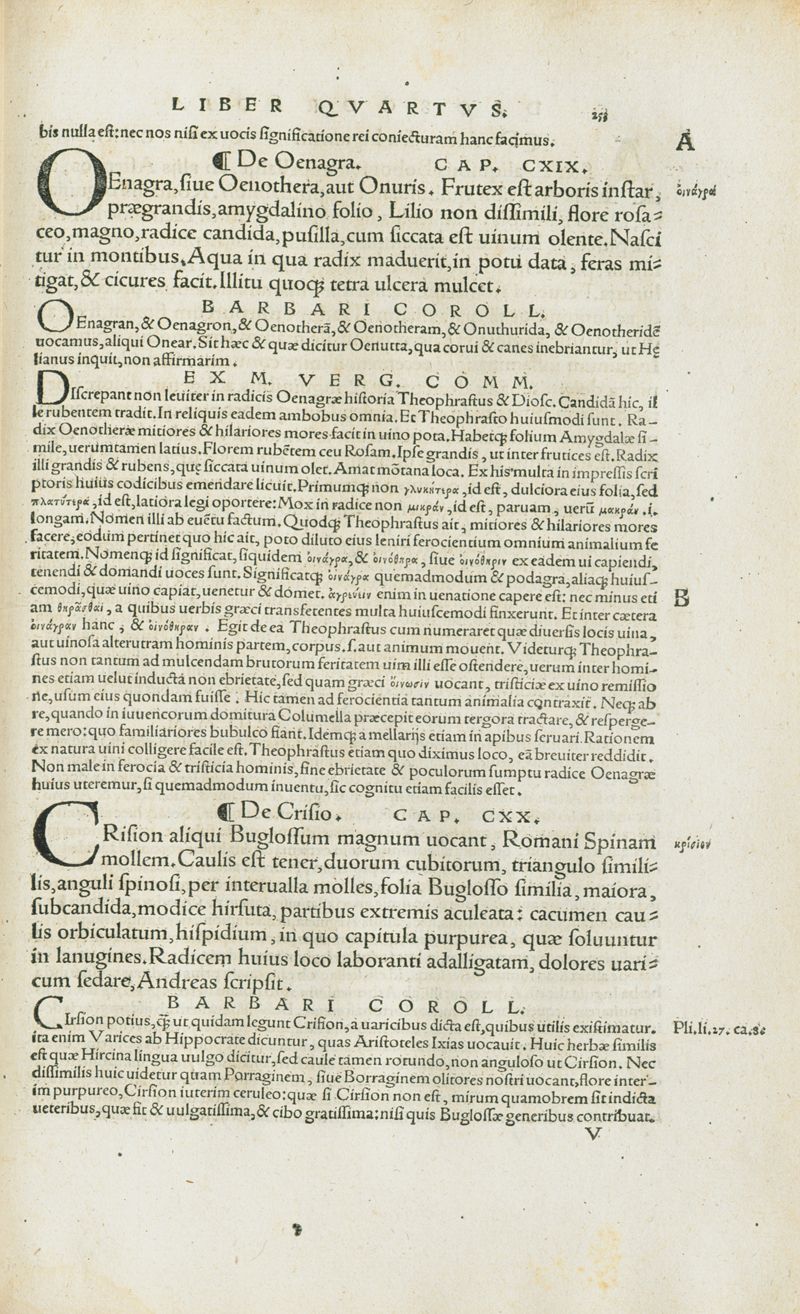 LIBER QVARTVS. 
bis nulla eſt: nec nos niſi ex uocis ſignificatione rei coniecturam hanc facimus.
A
¶ De Oenagra. CAP. CXIX.
OEnagra, ſiue Oenothera, aut Onuris. Frutex eſt arboris inſtar,
οἰνάγρα
prægrandis, amygdalino folio, Lilio non diſſimili, flore roſa⸗
ceo, magno, radice candida, puſilla, cum ſiccata eſt uinum olente. Naſci
tur in montibus. Aqua in qua radix maduerit, in potu data, feras mi⸗
tigat, & cicures facit. Illitu quoqꝫ tetra ulcera mulcet.
BARBARI COROLL.
OEnagran, & Oenagron, & Oenotherā, & Oenotheram, & Onuthurida, & Oenotheridē
uocamus, aliqui Onear. Sit hæc & quæ dicitur Oenutta, qua corui & canes inebriantur, ut He
lianus inquit, non affirmarim.
EX M. VERG. COMM.
DIſcrepant non leuiter in radicis Oenagræ hiſtoria Theophraſtus & Dioſc. Candidā hic, il
le rubentem tradit. In reliquis eadem ambobus omnia. Et Theophraſto huiuſmodi ſunt. Ra-
dix Oenotheræ mitiores & hilariores mores facit in uino pota. Habetqꝫ folium Amygdalæ ſi-
mile, uerumtamen latius. Florem rubētem ceu Roſam. Ipſe grandis, ut inter frutices eſt. Radix
illi grandis & rubens, quę ſiccata uinum olet. Amat mōtana loca. Ex his multa in impreſſis ſcri
ptoris huius codicibus emendare licuit. Primumqꝫ non γλυκύτερα, id eſt, dulciora eius folia, ſed
πλατύτερα, id eſt, latiora legi oportere: Mox in radice non μικρὰν, id eſt, paruam, uerū μακρὰν .i.
longam. Nomen illi ab euētu factum. Quodqꝫ Theophraſtus ait, mitiores & hilariores mores
facere, eodum pertinet quo hic ait, poto diluto eius leniri ferocientium omnium animalium fe
ritatem. Nomenqꝫ id ſignificat, ſiquidem οἰνάγρα, & οἰνόθηρα, ſiue οἰνόθηριν ex eadem ui capiendi,
tenendi & domandi uoces ſunt. Significatqꝫ οἰνάγρα quemadmodum & podagra, aliaqꝫ huiuſ-
cemodi, quæ uino capiat, uenetur & domet. ἀγρεύειν enim in uenatione capere eſt: nec minus eti
B
am θηρᾶσθαι, a quibus uerbis græci transferentes multa huiuſcemodi finxerunt. Et inter cætera
οἰνάγραν hanc, & οἰνόθηραν. Egit de ea Theophraſtus cum numeraret quæ diuerſis locis uina,
aut uinoſa alterutram hominis partem, corpus. ſ. aut animum mouent. Videturqꝫ Theophra-
ſtus non tantum ad mulcendam brutorum feritatem uim illi eſſe oſtendere, uerum inter homi-
nes etiam uelut inductā non ebrietatē, ſed quam græci οἴνωσιν uocant, triſticiæ ex uino remiſſio
ne, uſum eius quondam fuiſſe. Hic tamen ad ferocientia tantum animalia contraxit. Neqꝫ ab
re, quando in iuuencorum domitura Columella præcepit eorum tergora tractare, & reſperge-
re mero: quo familiariores bubulco fiant. Idemqꝫ a mellarijs etiam in apibus ſeruari. Rationem
ex natura uini colligere facile eſt. Theophraſtus etiam quo diximus loco, eā breuiter reddidit.
Non male in ferocia & triſticia hominis, ſine ebrietate & poculorum ſumptu radice Oenagræ
huius uteremur, ſi quemadmodum inuentu, ſic cognitu etiam facilis eſſet.
¶ De Criſio. CAP. CXX.
CRiſion aliqui Bugloſſum magnum uocant, Romani Spinam
κρίσιον
mollem. Caulis eſt tener, duorum cubitorum, triangulo ſimili⸗
lis, anguli ſpinoſi, per interualla molles, folia Bugloſſo ſimilia, maiora,
ſubcandida, modice hirſuta, partibus extremis aculeata: cacumen cau⸗
lis orbiculatum, hiſpidium, in quo capitula purpurea, quæ ſoluuntur
in lanugines. Radicem huius loco laboranti adalligatam, dolores uari⸗
cum ſedare, Andreas ſcripſit.
BARBARI COROLL.
CIrſion potius, ꝙ̄ ut quidam legunt Criſion, a uaricibus dicta eſt, quibus utilis exiſtimatur.
Pli. li. 27. ca. 8.
ita enim Varices ab Hippocrate dicuntur, quas Ariſtoteles Ixias uocauit. Huic herbæ ſimilis
eſt quæ Hircina lingua uulgo dicitur, ſed caule tamen rotundo, non anguloſo ut Cirſion. Nec
diſſimilis huic uidetur quam Porraginem, ſiue Borraginem olitores noſtri uocant, flore inter-
im purpureo, Cirſion iuterim ceruleo: quæ ſi Cirſion non eſt, mirum quamobrem ſit indicta
ueteribus, quæ ſit & uulgatiſſima, & cibo gratiſſima: niſi quis Bugloſſæ generibus contribuat.
V